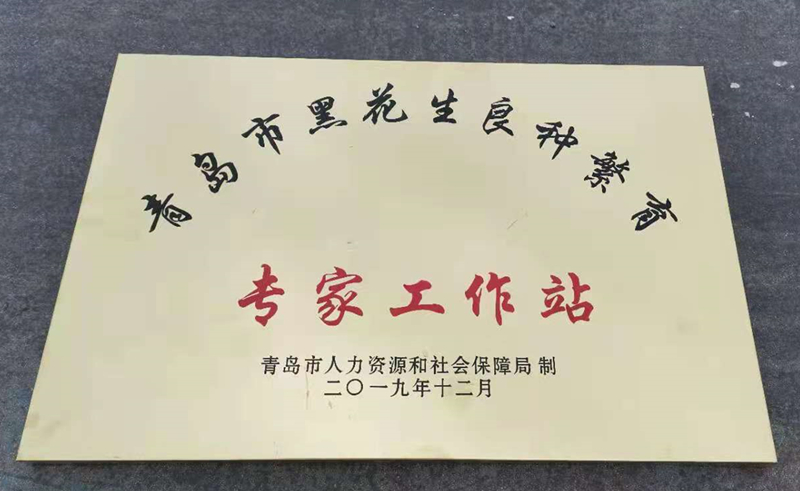 青岛市黑花生良种繁育
专家工作站
青岛市人力资源和社会保障局 制
二〇一九年十二月